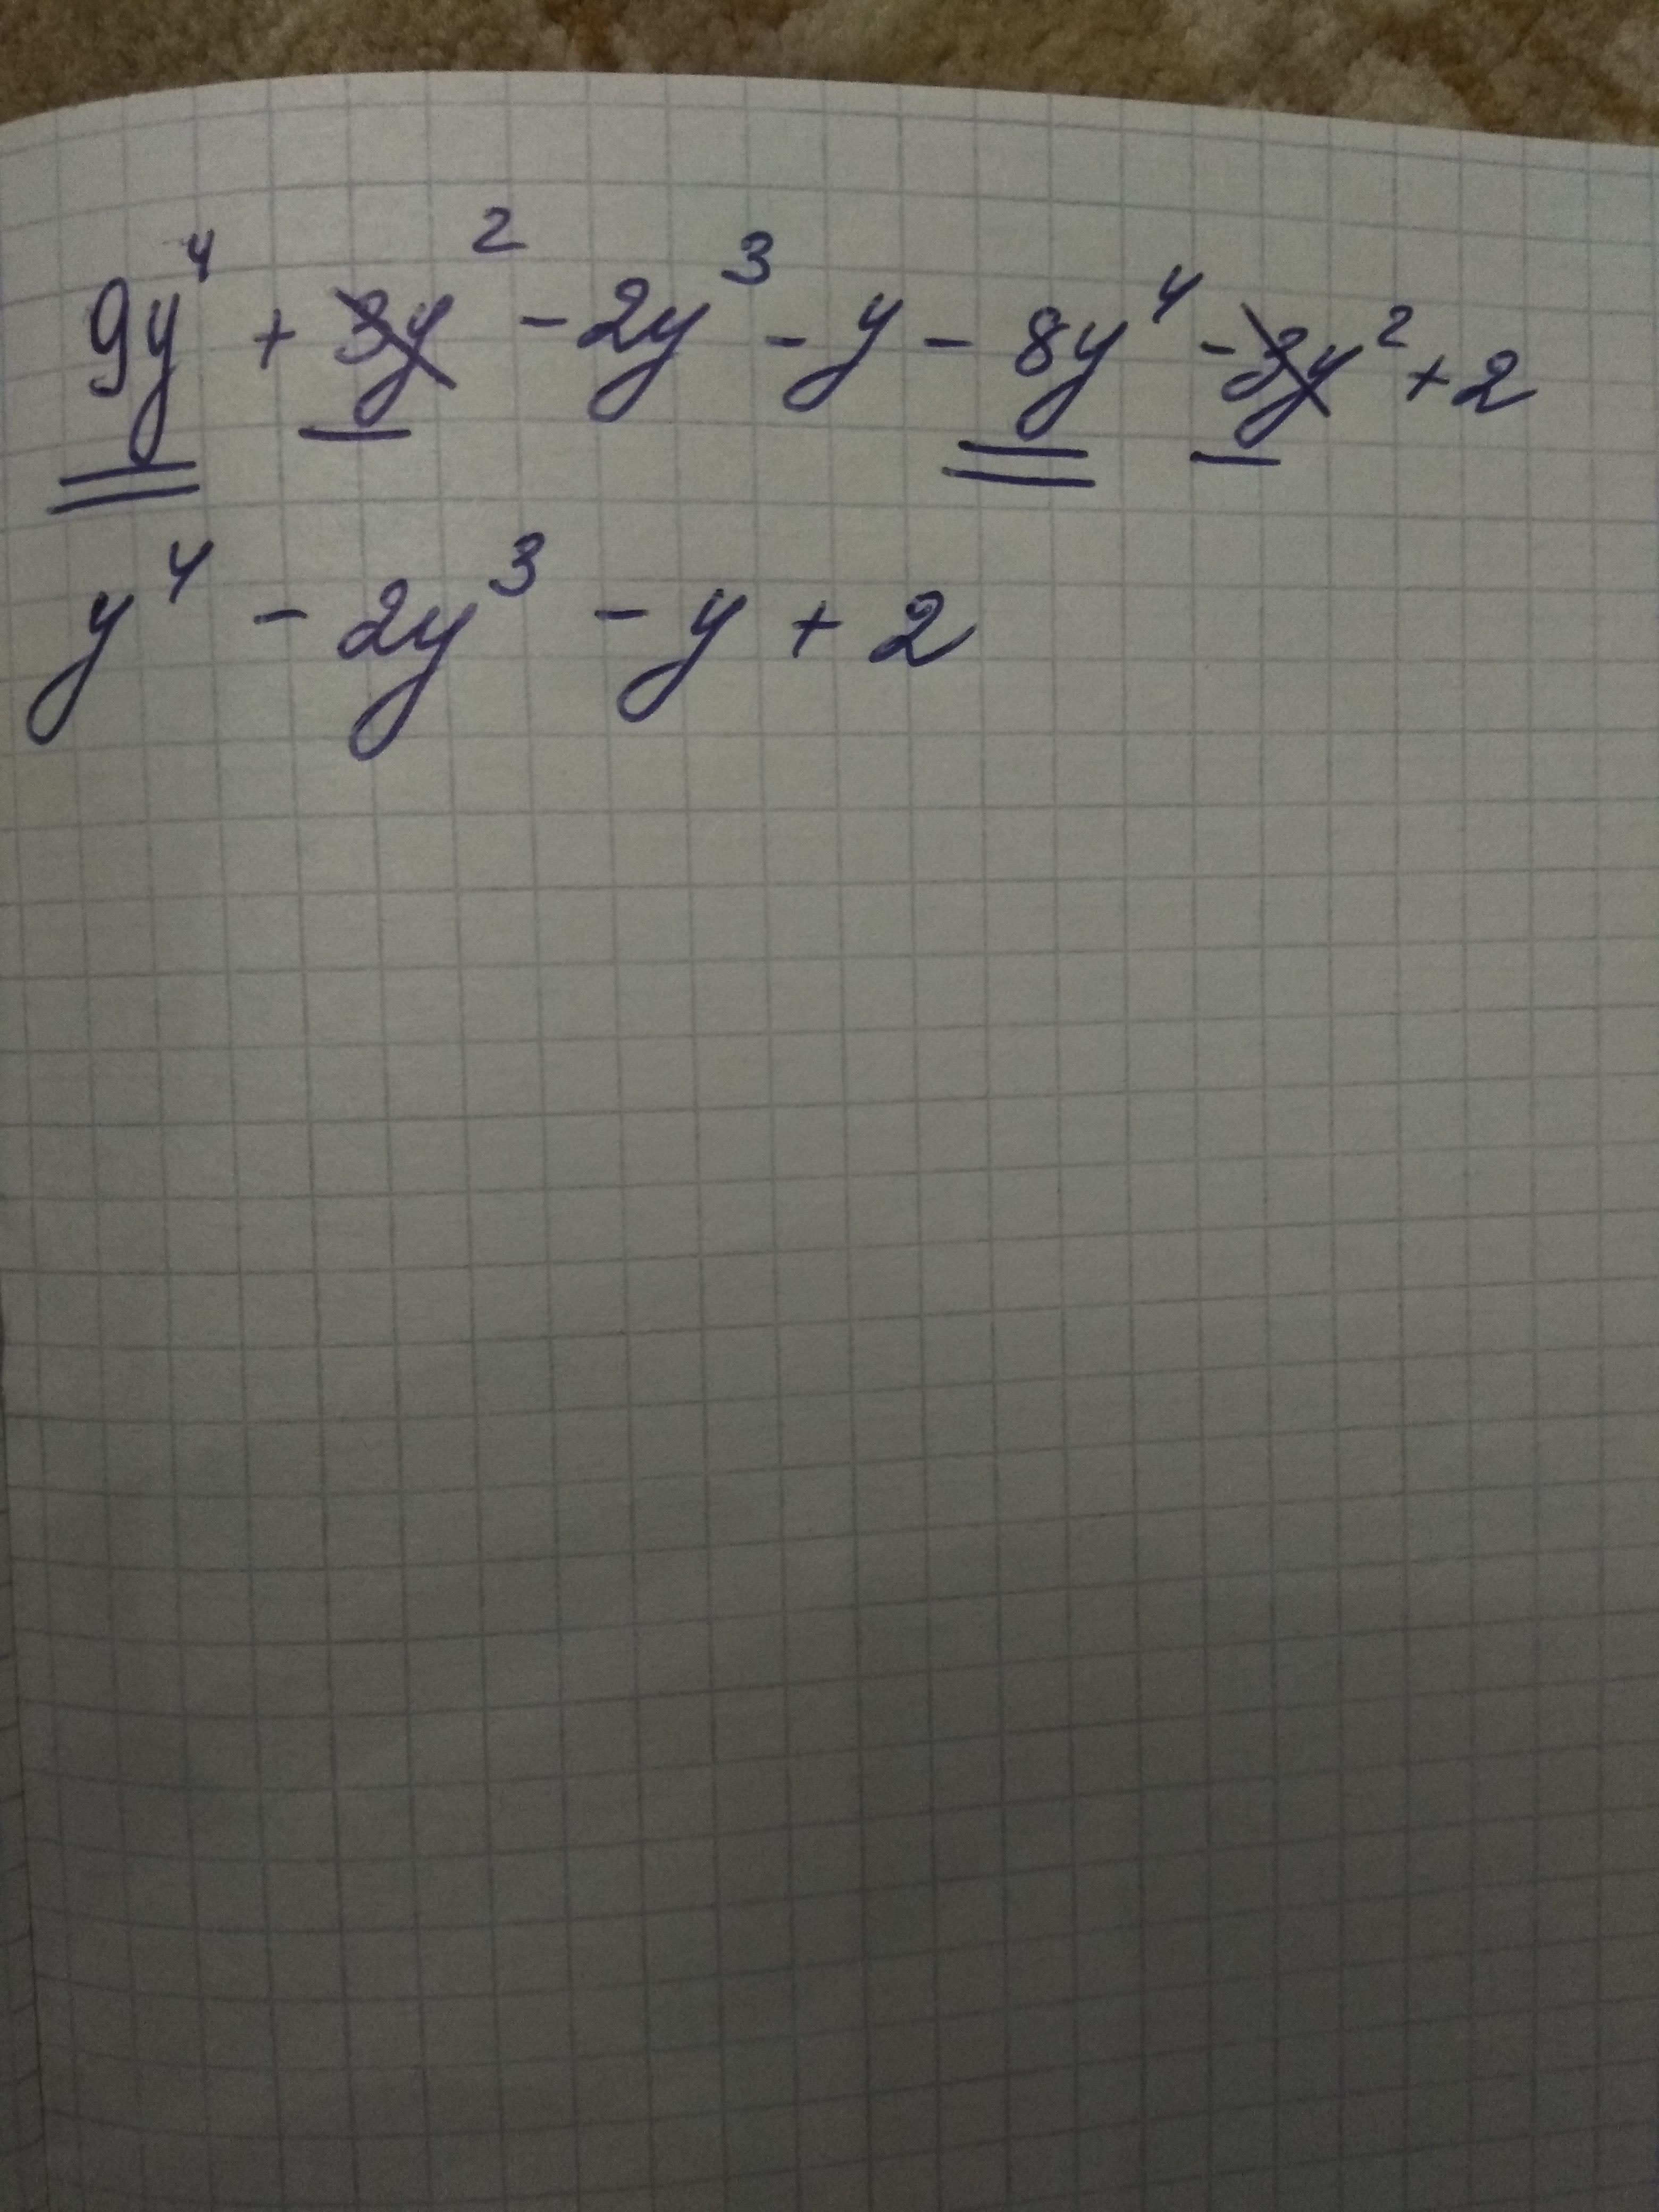 9y⁴ + 3y² - 2y³ - y - 8y⁴ - 3y² + 2
y⁴ - 2y³ - y + 2